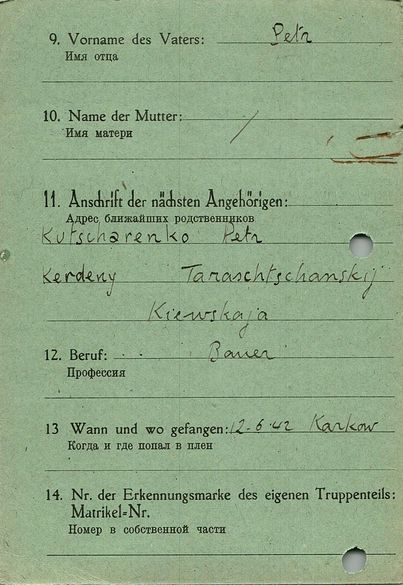 9. Vorname des Vaters: Petr
Имя отца
10. Name der Mutter: /
Имя матери
11. Anschrift der nächsten Angehörigen:
Адрес ближайших родственников
Kutscharenko Petr
Kerdeny Taraschtschanskij
Kiewskaja
12. Beruf: Bauer
Профессия
13 Wann und wo gefangen: 12-6-42 Karkow
Когда и где попал в плен
14. Nr. der Erkennungsmarke des eigenen Truppenteils:
Matrikel-Nr.
Номер в собственной части